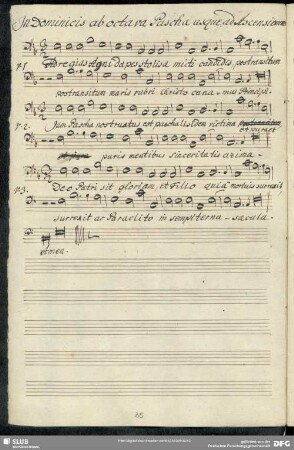 In Dominicis ab octava Pascha usque ad Ascensionem
V. 1. Ad regias Agni dapes stolis amicti candidis, post transitum
post transitum maris rubri Christo cana- mus Principi.
V. 2. Jam Pascha nostrum est paschalis idem victima
et pura et
puris mentibus sinceritatis azima.
V. 3. Deo Patri sit gloria, et Filio qui a mortuis surrexit
surrexit ac Paraclito in sempiterna- sæcula.
Amen.
SLUB
DFG